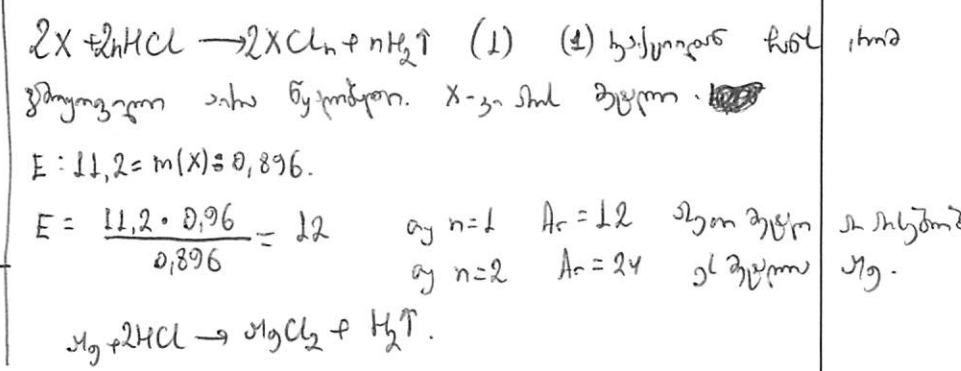 2X + 2nHCl → 2XCln + nH₂↑ (1) (1) რეაქციიდან ჩანს, რომ
გამოყოფილი აირი წყალბადი. X-კი არის მეტალი.
E : 11,2 = m(X) : 0,896.
E = 11,2 · 0,96 / 0,896 = 12 თუ n=1 Ar = 12 ასეთი მეტალი არ არსებობს
თუ n=2 Ar = 24 ეს მეტალია Mg.
Mg + 2HCl → MgCl₂ + H₂↑.